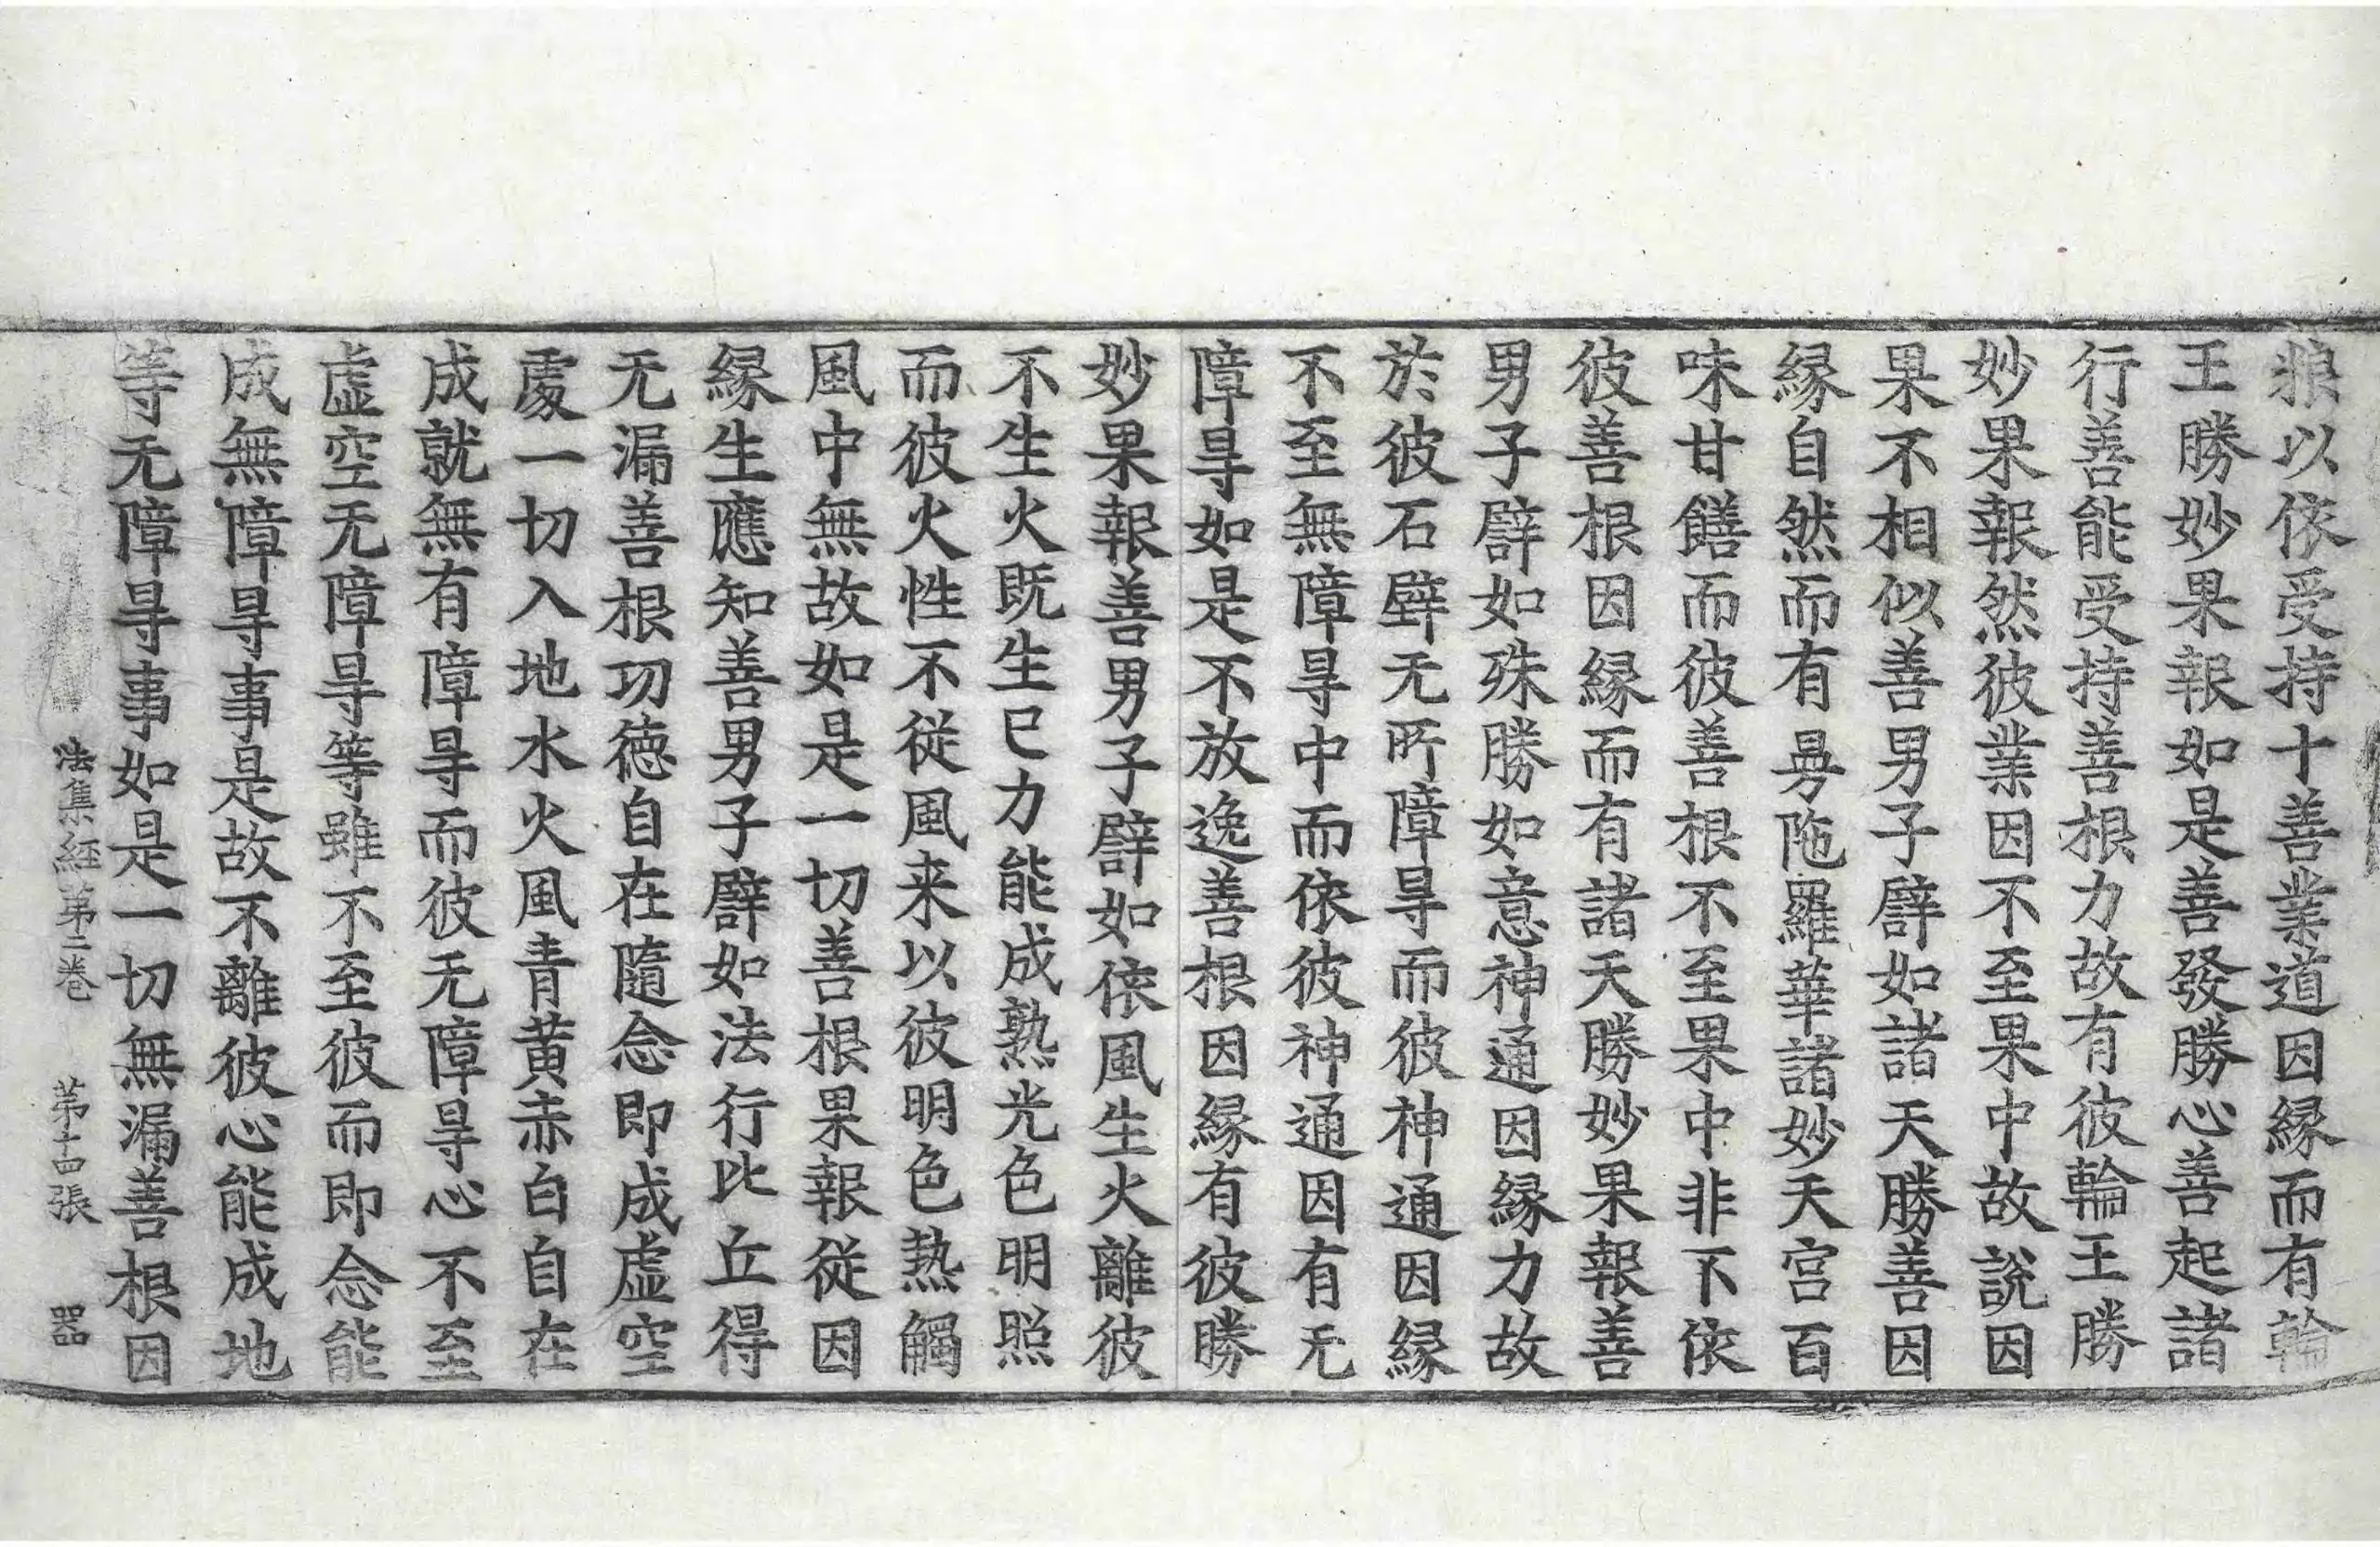 狼以依受持十善業道因緣而有輪
王勝妙果報如是善發勝心善起諸
行善能受持善根力故有彼輪王勝
妙果報然彼業因不至果中故說因
果不相似善男子譬如諸天勝善因
緣自然而有曼陁羅華諸妙天宫百
味甘饍而彼善根不至果中非不依
彼善根因緣而有諸天勝妙果報善
男子譬如殊勝如意神通因緣力故
於彼石壁无所障㝵而彼神通因緣
不至無障㝵中而依彼神通因有无
障㝵如是不放逸善根因緣有彼勝
妙果報善男子譬如依風生火離彼
不生火既生已力能成熟光色明照
而彼火性不從風来以彼明色熱觸
風中無故如是一切善根果報從因
緣生應知善男子譬如法行比丘得
无漏善根功德自在隨念即成虛空
處一切入地水火風青黃赤白自在
成就無有障㝵而彼无障㝵心不至
虛空无障㝵等雖不至彼而即念能
成無障㝵事是故不離彼心能成地
等无障㝵事如是一切無漏善根因
法集經第二卷 第十四張 器